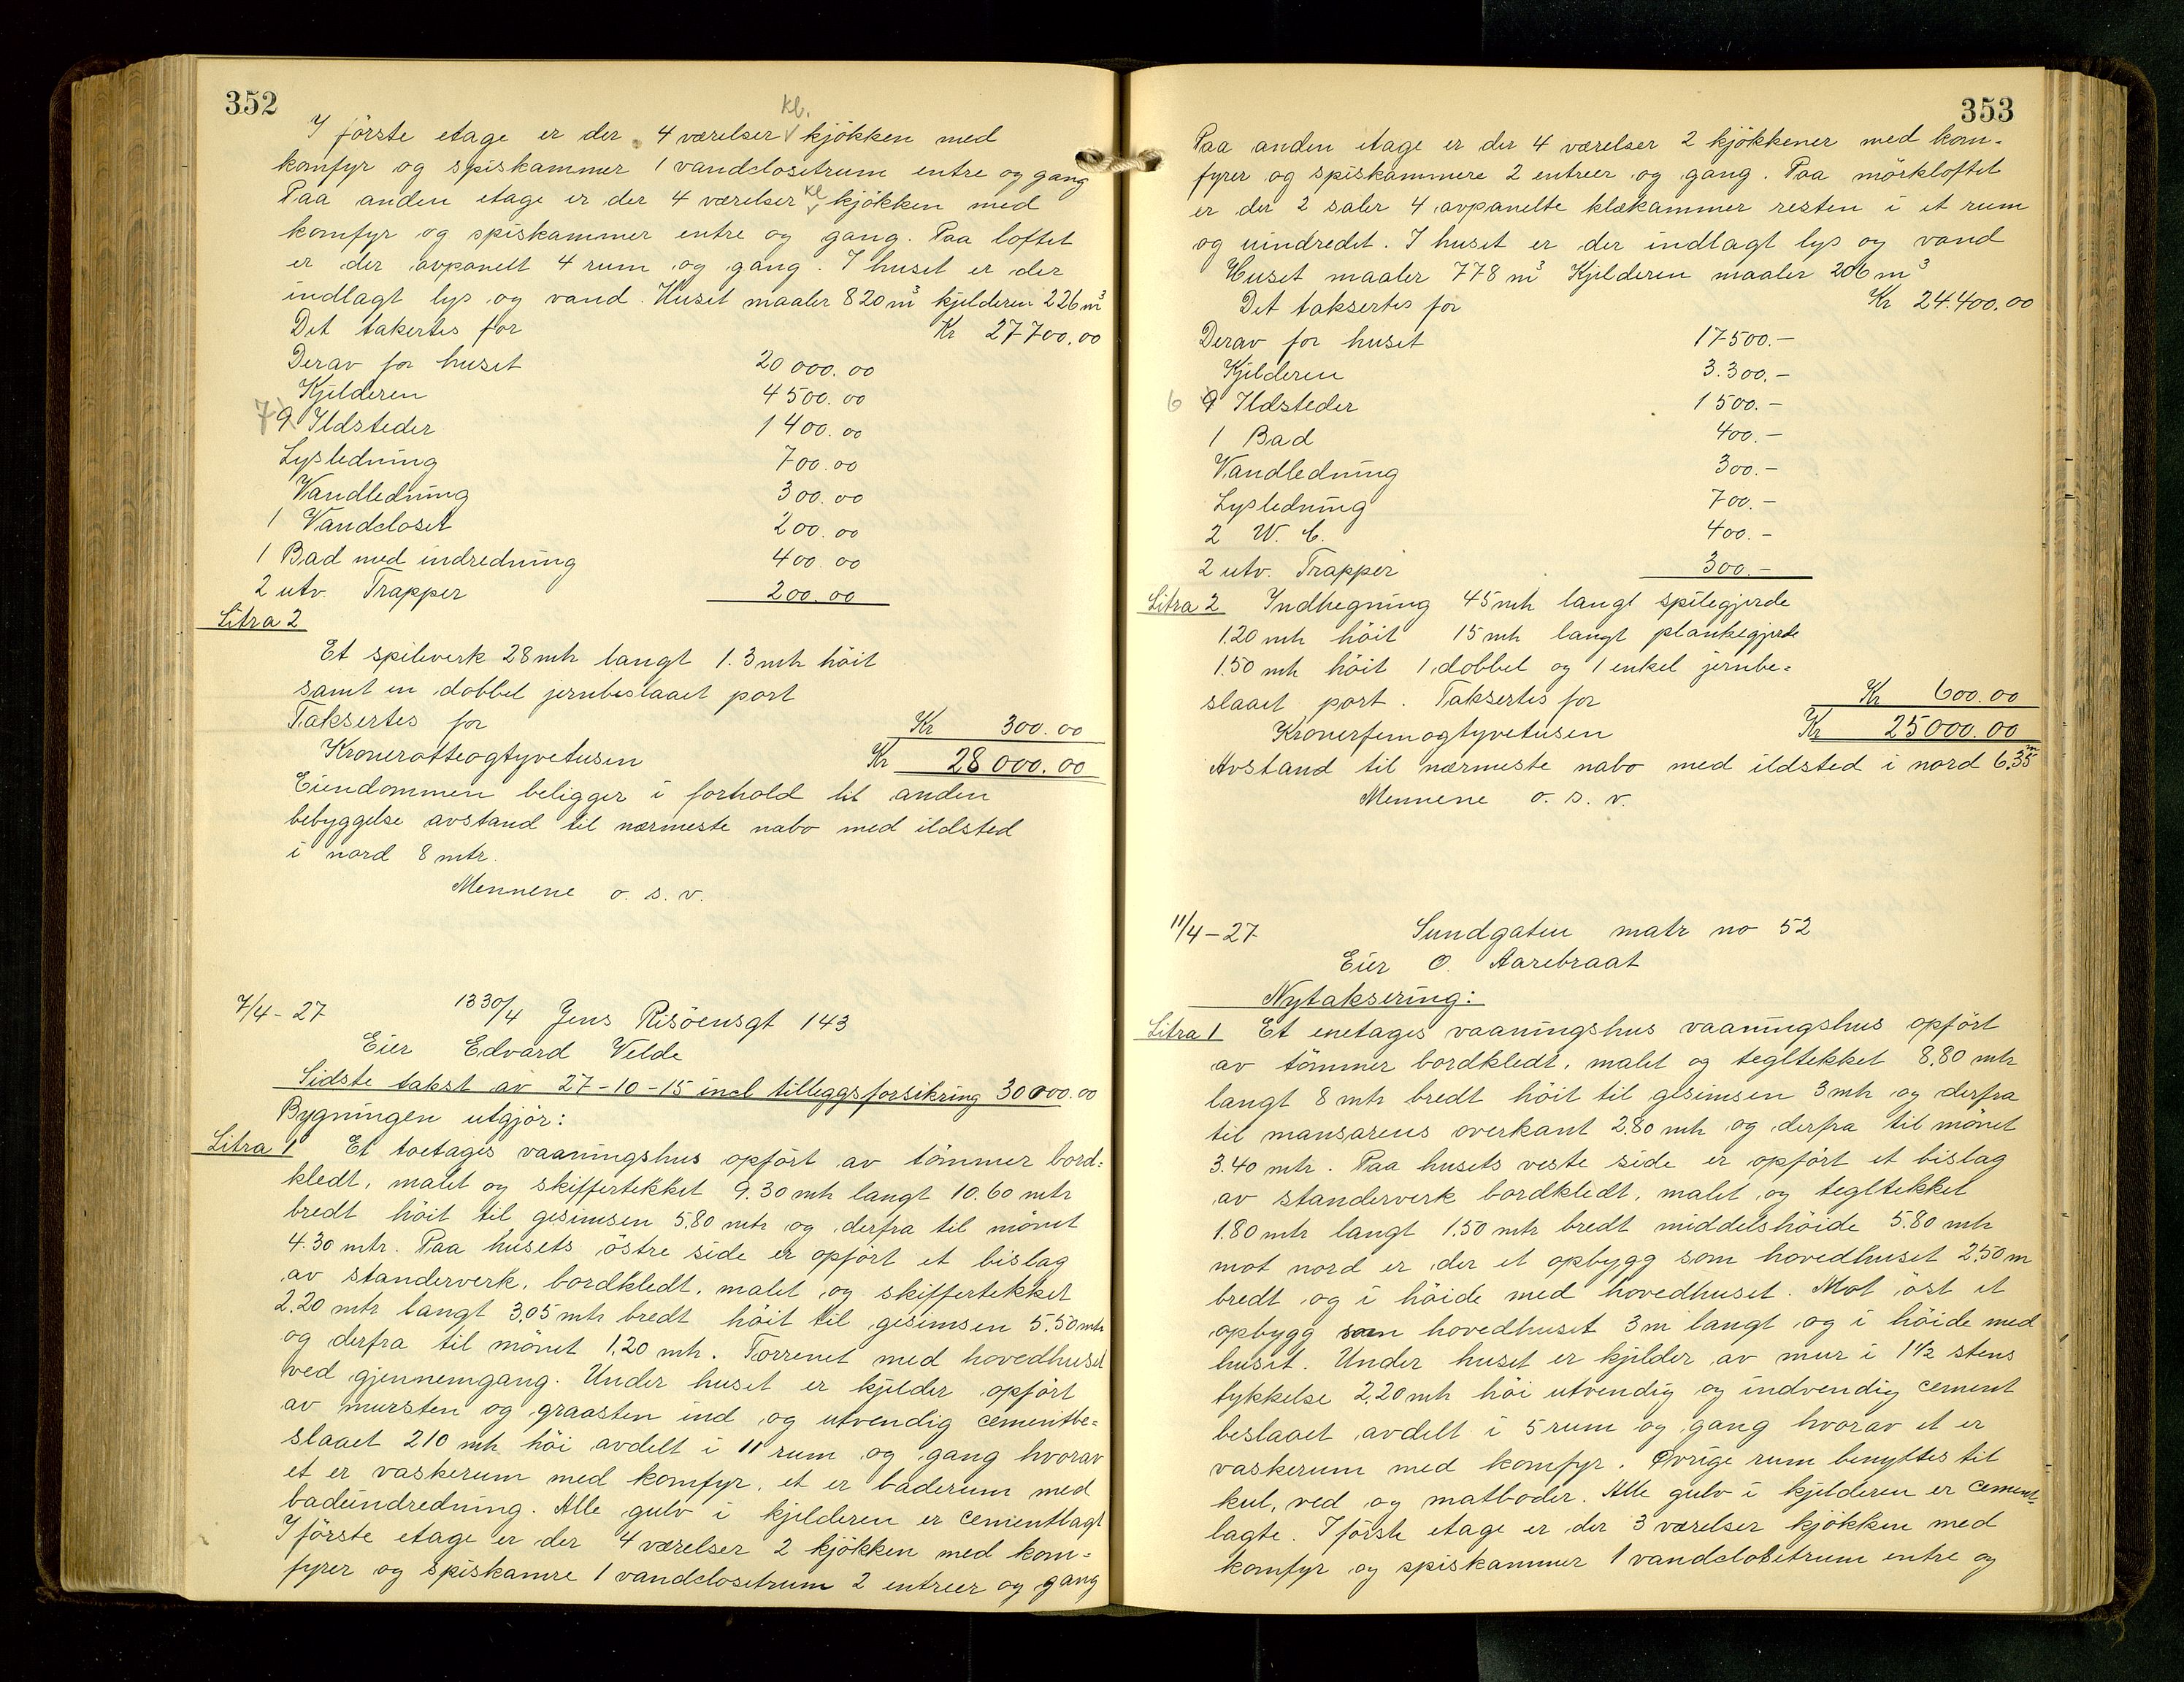 352
kl.
I förste etage er der 4 værelser kjökken med
komfyr og spiskammer 1 vandclosetrum entre og gang
kl
Paa anden etage er der 4 værelser kjökken med
komfyr og spiskammer entre og gang. Paa loftet
er der avpanelt 4 rum og gang. I huset er der
indlagt lys og vand. Huset maaler 820 m³ kjelderen 226 m³
Det takertes for Kr 27700.00
Derav for huset 20 000.00
Kjelderen 4500.00
7 9 Ildsteder 1400.00
Lysledning 700.00
Vandledning 300.00
1 Vandcloset 200.00
1 Bad med indredning 400.00
2 utv. Trapper 200.00
Litra 2
Et spileverk 28 mtr langt 1.3 mtr höit
samt en dobbel jernbeslaaet port
Taksertes for Kr 300.00
Kronerotteogtyvetusen Kr 28 000.00
Eiendommen beligger i forhold til anden
bebyggelse avstand til nærmeste nabo med ildsted
i nord 8 mtr.
Mennene o. s. v.
7/4-27 1330/4 Jens Risöensgt 143
Eier Edvard Velde
Sidste takst av 27-10-15 incl tilleggsforsikring 30000.00
Bygningen utgjör:
Litra 1 Et toetages vaaningshus opfört av tömmer bord=
kledt, malet og skiffertekket 9.30 mtr langt 10.60 mtr
bredt höit til gesimsen 5.80 mtr og derfra til mönet
4.30 mtr. Paa husets östre side er opfört et bislag
av standerverk, bordkledt, malet og skiffertekket
2.20 mtr langt 3.05 mtr bredt höit til gesimsen 5.50 mtr
og derfra til mönet 1.20 mtr. Forrenet med hovedhuset
ved gjennemgang. Under huset er kjelder opfört
av mursten og graasten ind og utvendig cementbe=
slaaet 210 mtr höi avdelt i 11 rum og gang hvorav
et er vaskerum med komfyr, et er baderum med
badeindredning. Alle gulv i kjelderen er cementlagt
I förste etage er der 4 værelser 2 kjökken med kom=
fyrer og spiskamre 1 vandclosetrum 2 entreer og gang
353
Paa anden etage er der 4 værelser 2 kjökkener med kom=
fyrer og spiskammere 2 entreer og gang. Paa mörkloftet
er der 2 saler 4 avpanelte klækammer resten i et rum
og uindredet. I huset er der indlagt lys og vand
Huset maaler 778 m³ Kjelderen maaler 206 m³
Det taksertes for Kr 24.400.00
Derav for huset 17500.-
Kjelderen 3.300.-
6 9 Ildsteder 1500.-
1 Bad 400.-
Vandledning 300.-
Lysledning 700.-
2 W. C. 400.-
2 utv. Trapper 300.-
Litra 2 Indhegning 45 mtr langt spilegjerde
1.20 mtr höit 15 mtr langt plankegjerde
1.50 mtr höit 1 dobbel og 1 enkel jernbe=
slaaet port. Taksertes for Kr 600.00
Kronerfemogtyvetusen Kr 25000.00
Avstand til nærmeste nabo med ildsted i nord 6.35 m
Mennene o. s. v.
11/4-27 Sundgaten matr no 52
Eier O. Aarebraat
Nytaksering:
Litra 1 Et enetages vaaningshus vaaningshus opfört
av tömmer bordkledt, malet og tegltekket 8.80 mtr
langt 8 mtr bredt höit til gesimsen 3 mtr og derfra
til mansarens overkant 2.80 mtr og derfra til mönet
3.40 mtr. Paa husets veste side er opfört et bislag
av standerverk bordkledt, malet og tegltekket
1.80 mtr langt 1.50 mtr bredt middelshöide 5.80 mtr
mot nord er der et opbygg som hovedhuset 2.50 m
bredt og i höide med hovedhuset. Mot öst et
opbygg som hovedhuset 3 m langt og i höide med
huset. Under huset er kjelder av mur i 1 1/2 stens
tykkelse 2.20 mtr höi utvendig og indvendig cement
beslaaet avdelt i 5 rum og gang hvorav et er
vaskerum med komfyr. Övrige rum benyttes til
kul, ved og matboder. Alle gulv i kjelderen er cement=
lagte. I förste etage er der 3 værelser kjökken med
komfyr og spiskammer 1 vandclosetrum entre og